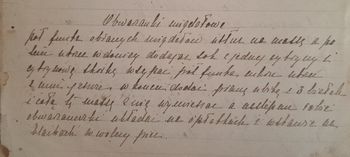 Obwarzanki migdałowe
pół funta obranych migdałów utłuc na massę a po
tem utrzeć w donicy dodając sok z jednej cytryny i
cytrynową skórkę wsypać pół funta cukru utrzeć
z nim jeszcze, w końcu dodać pianę ubitą z 3 białek
i całą tę massę z nią wymieszać a następnie robić
obwarzaneczki układać na opłatkach i wstawić na
blachach w wolny piec.